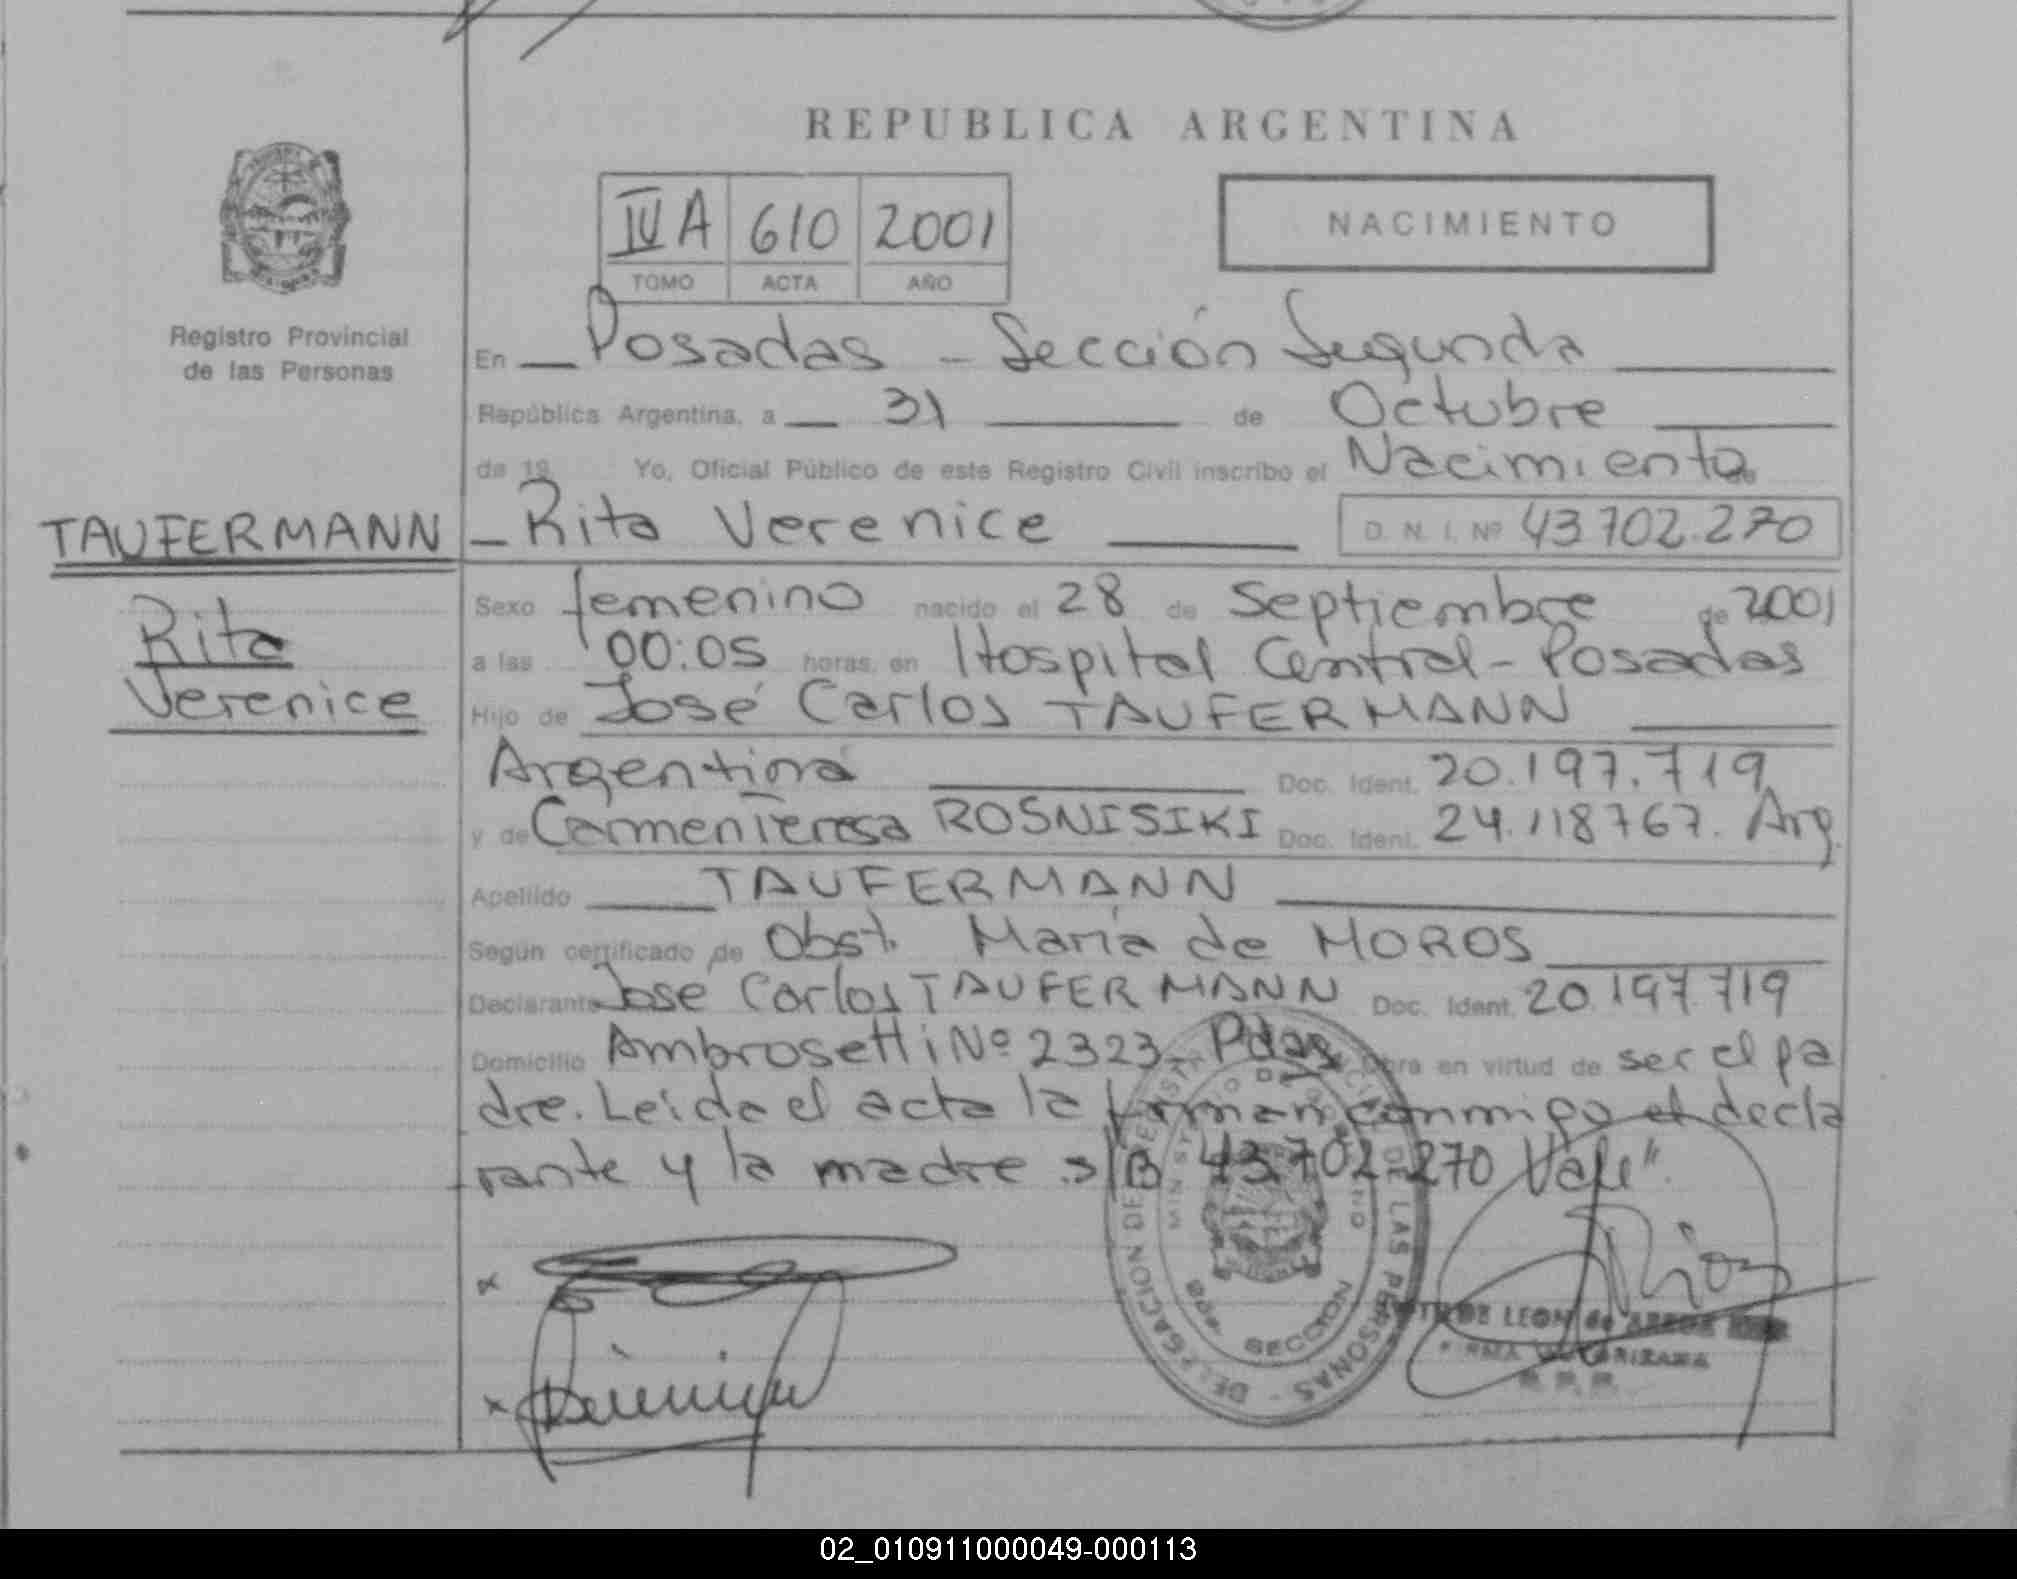 REPUBLICA ARGENTINA
IV A 610 2001
TOMO ACTA AÑO
NACIMIENTO
Registro Provincial
de las Personas
En Posadas - Sección Segunda
República Argentina, a 31 de Octubre
de 19 Yo, Oficial Público de este Registro Civil inscribo el Nacimiento de
TAUFERMANN
Rita Verenice D. N. I. Nº 43702.270
Rita
Verenice
Sexo femenino nacido el 28 de Septiembre de 2001
a las 00:05 horas, en Hospital Central - Posadas
Hijo de José Carlos TAUFERMANN
Argentina Doc. Ident. 20.197.719
y de Carmen Teresa ROSNISIKI Doc. Ident. 24.118767. Arg.
Apellido TAUFERMANN
Según certificado de Obst. María de MOROS
Declarante Jose Carlos TAUFERMANN Doc. Ident. 20.197.719
Domicilio Ambrosetti Nº 2323 Pdas Obra en virtud de ser el pa
dre. Leida el acta la firman conmigo el decla
rante y la madre s/B 43.702.270 Vale".
x
x
DELEGACION DE REGISTRO DE LAS PERSONAS
MINISTERIO DE GOBIERNO
SECCION
DE LEON de
FIRMA AUTORIZADA
R.P.P.
02_010911000049-000113